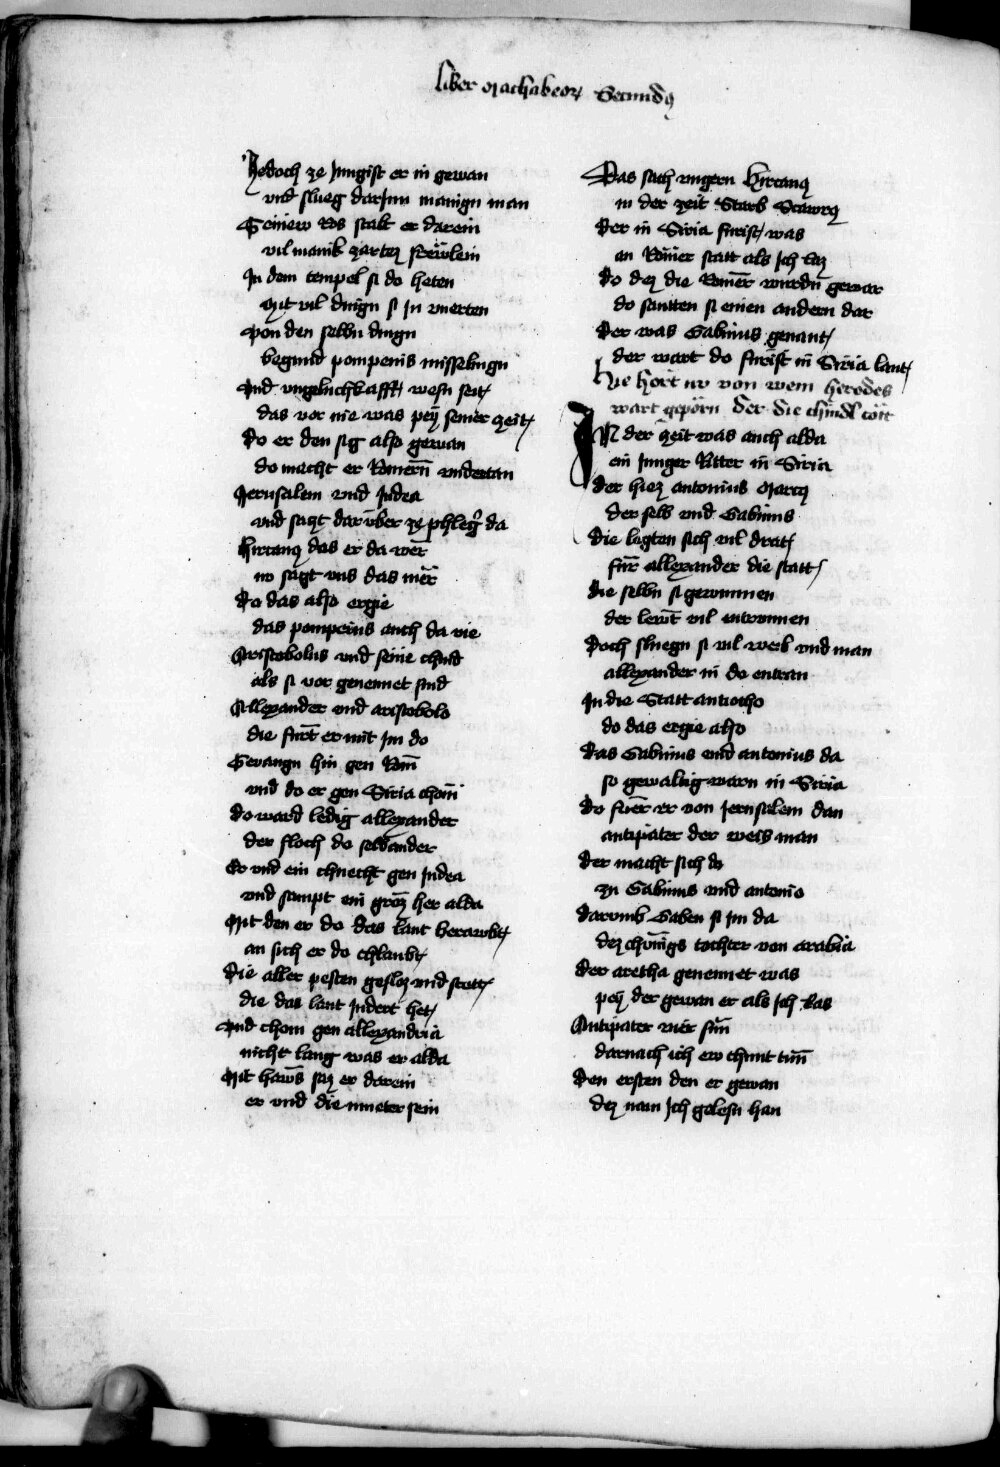 liber Machabeor Secundus
Yedoch ze Jungist er in gewan
vnd slueg darJnn manign man
Seinew Ros stalt er darein
vil manik zartez frewlein
Jn dem tempel si do heten
Mit vil dingn si Jn vnerten
Von den selbn dingn
begund pompenis misselingn
Vnd vngeluchkafft wesn seit
das vor nie was pey seiner zeit
do er den sig also gewan
do macht er Romern vndertan
Jerusalem vnd Judea
vnd saczt darüber ze phleger da
Hircanus das er da wer
nv sagt vns das mer
do das also ergie
das pompeius auch da vie
Aristobolus vnd seine chind
als si vor genennet sind
Allexander vnd aristobolo
die furt er mit Jm do
Gevangn hin gen Rom
vnd do er gen Siria chom
do ward ledig allexander
der floch do selbander
Er vnd ein chnecht gen Judea
vnd sampt ein groz her alda
Mit den er do das lant berawbt
an sich er do chlaubt
die aller pesten gesloz vnd stett
die das lant Jndert het
Vnd chom gen allexandria
nicht lang was er alda
Mit haws saz er darein
er vnd die mueter sein
Das sach vngern Hircanus
in der zeit Starb Scawrus
der in Siria furist was
an Römer statt als Jch laz
do dez die Romer wurdn gewar
do santten si einen andern dar
der was Gabinius genant
der wart do furist in Siria lant
Hie hort nv von wem herodes
wart geporn der die chindl tött
JN der zeit was auch alda
ein Junger Ritter in Siria
der hiez antonius Marcus
der selb vnd Gabinius
die legten sich vil drat
für allexander die statt
die selbn si gewunnen
der lewt vil entrunnen
doch sluegn si vil weib vnd man
allexander in do entran
Jn die Statt antiocho
do das ergie also
das Gabinius vnd antonius da
so gewaltig warn in Siria
do fuer er von Jerusalem dan
antipater der weis man
der macht sich do
zu Gabinius vnd antonio
darumb Gaben si Jm da
dez chünigs tochter von arabia
der aretha genennet was
pey der gewan er als Jch las
Antipater vier sün
darnach ich ew chunt tun
den ersten den er gewan
dez nam Jch gelesn han